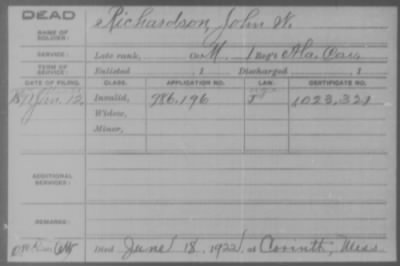 DEAD
NAME OF SOLDIER: Richardson, John W.
SERVICE: Late rank, Co. M, 1 Reg't Ala. Cav.
TERM OF SERVICE: Enlisted 1 Discharged , 1
DATE OF FILING. CLASS. APPLICATION NO. LAW. CERTIFICATE NO.
12 Invalid, 986.196 1023.321
Widow,
Minor,
ADDITIONAL SERVICES:
REMARKS:
Died June 18, 1922, at Corinth, Miss